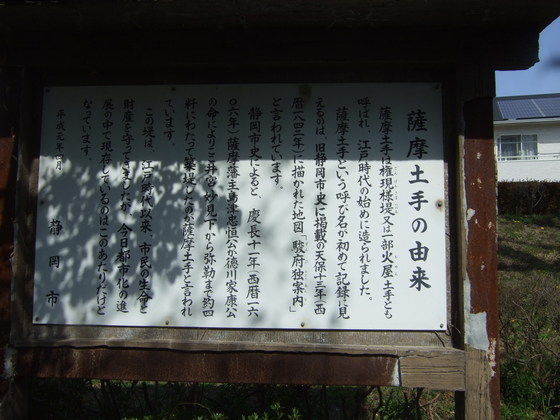 薩摩土手の由来
薩摩土手は権現様堤又は一部火屋土手とも
呼ばれ、江戸時代の始めに造られました。
薩摩土手という呼び名が初めて記録に見
えるのは、旧静岡市史に掲載の天保十三年(西
暦一八四二年)に描かれた地図「駿府独案内」
と言われています。
静岡市史によると、慶長十一年(西暦一六
〇六年)薩摩藩主島津忠恒公が徳川家康公
の命によりこ井宮妙見下から弥勒まで約四
粁にわたって築堤したのが薩摩土手と言われ
ています。
この堤は、江戸時代以来、市民の生命と
財産を守ってきましたが、今日都市化の進
展の中で現存しているのはこのあたりだけと
なっています。
平成元年四月
静岡市